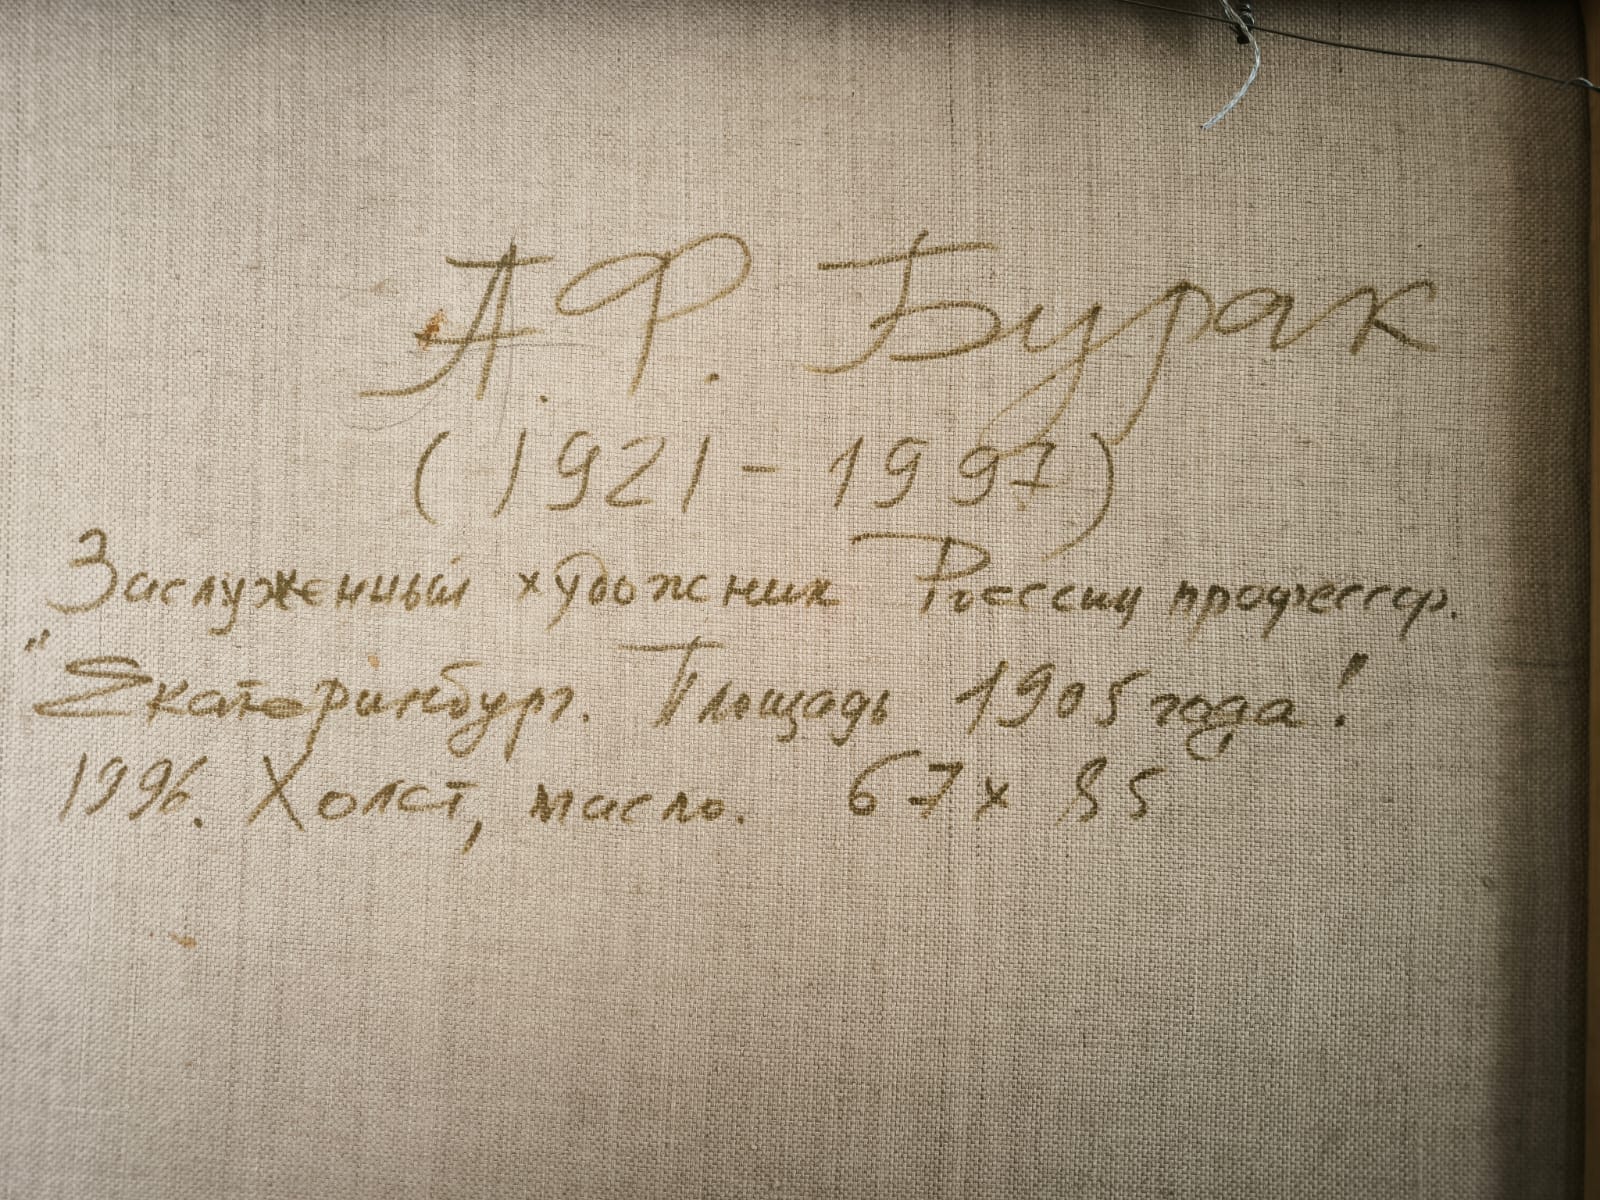 А. Ф. Бурак
(1921 - 1997)
Заслуженный художник России профессор.
"Екатеринбург. Площадь 1905 года"
1996. Холст, масло. 67 х 85